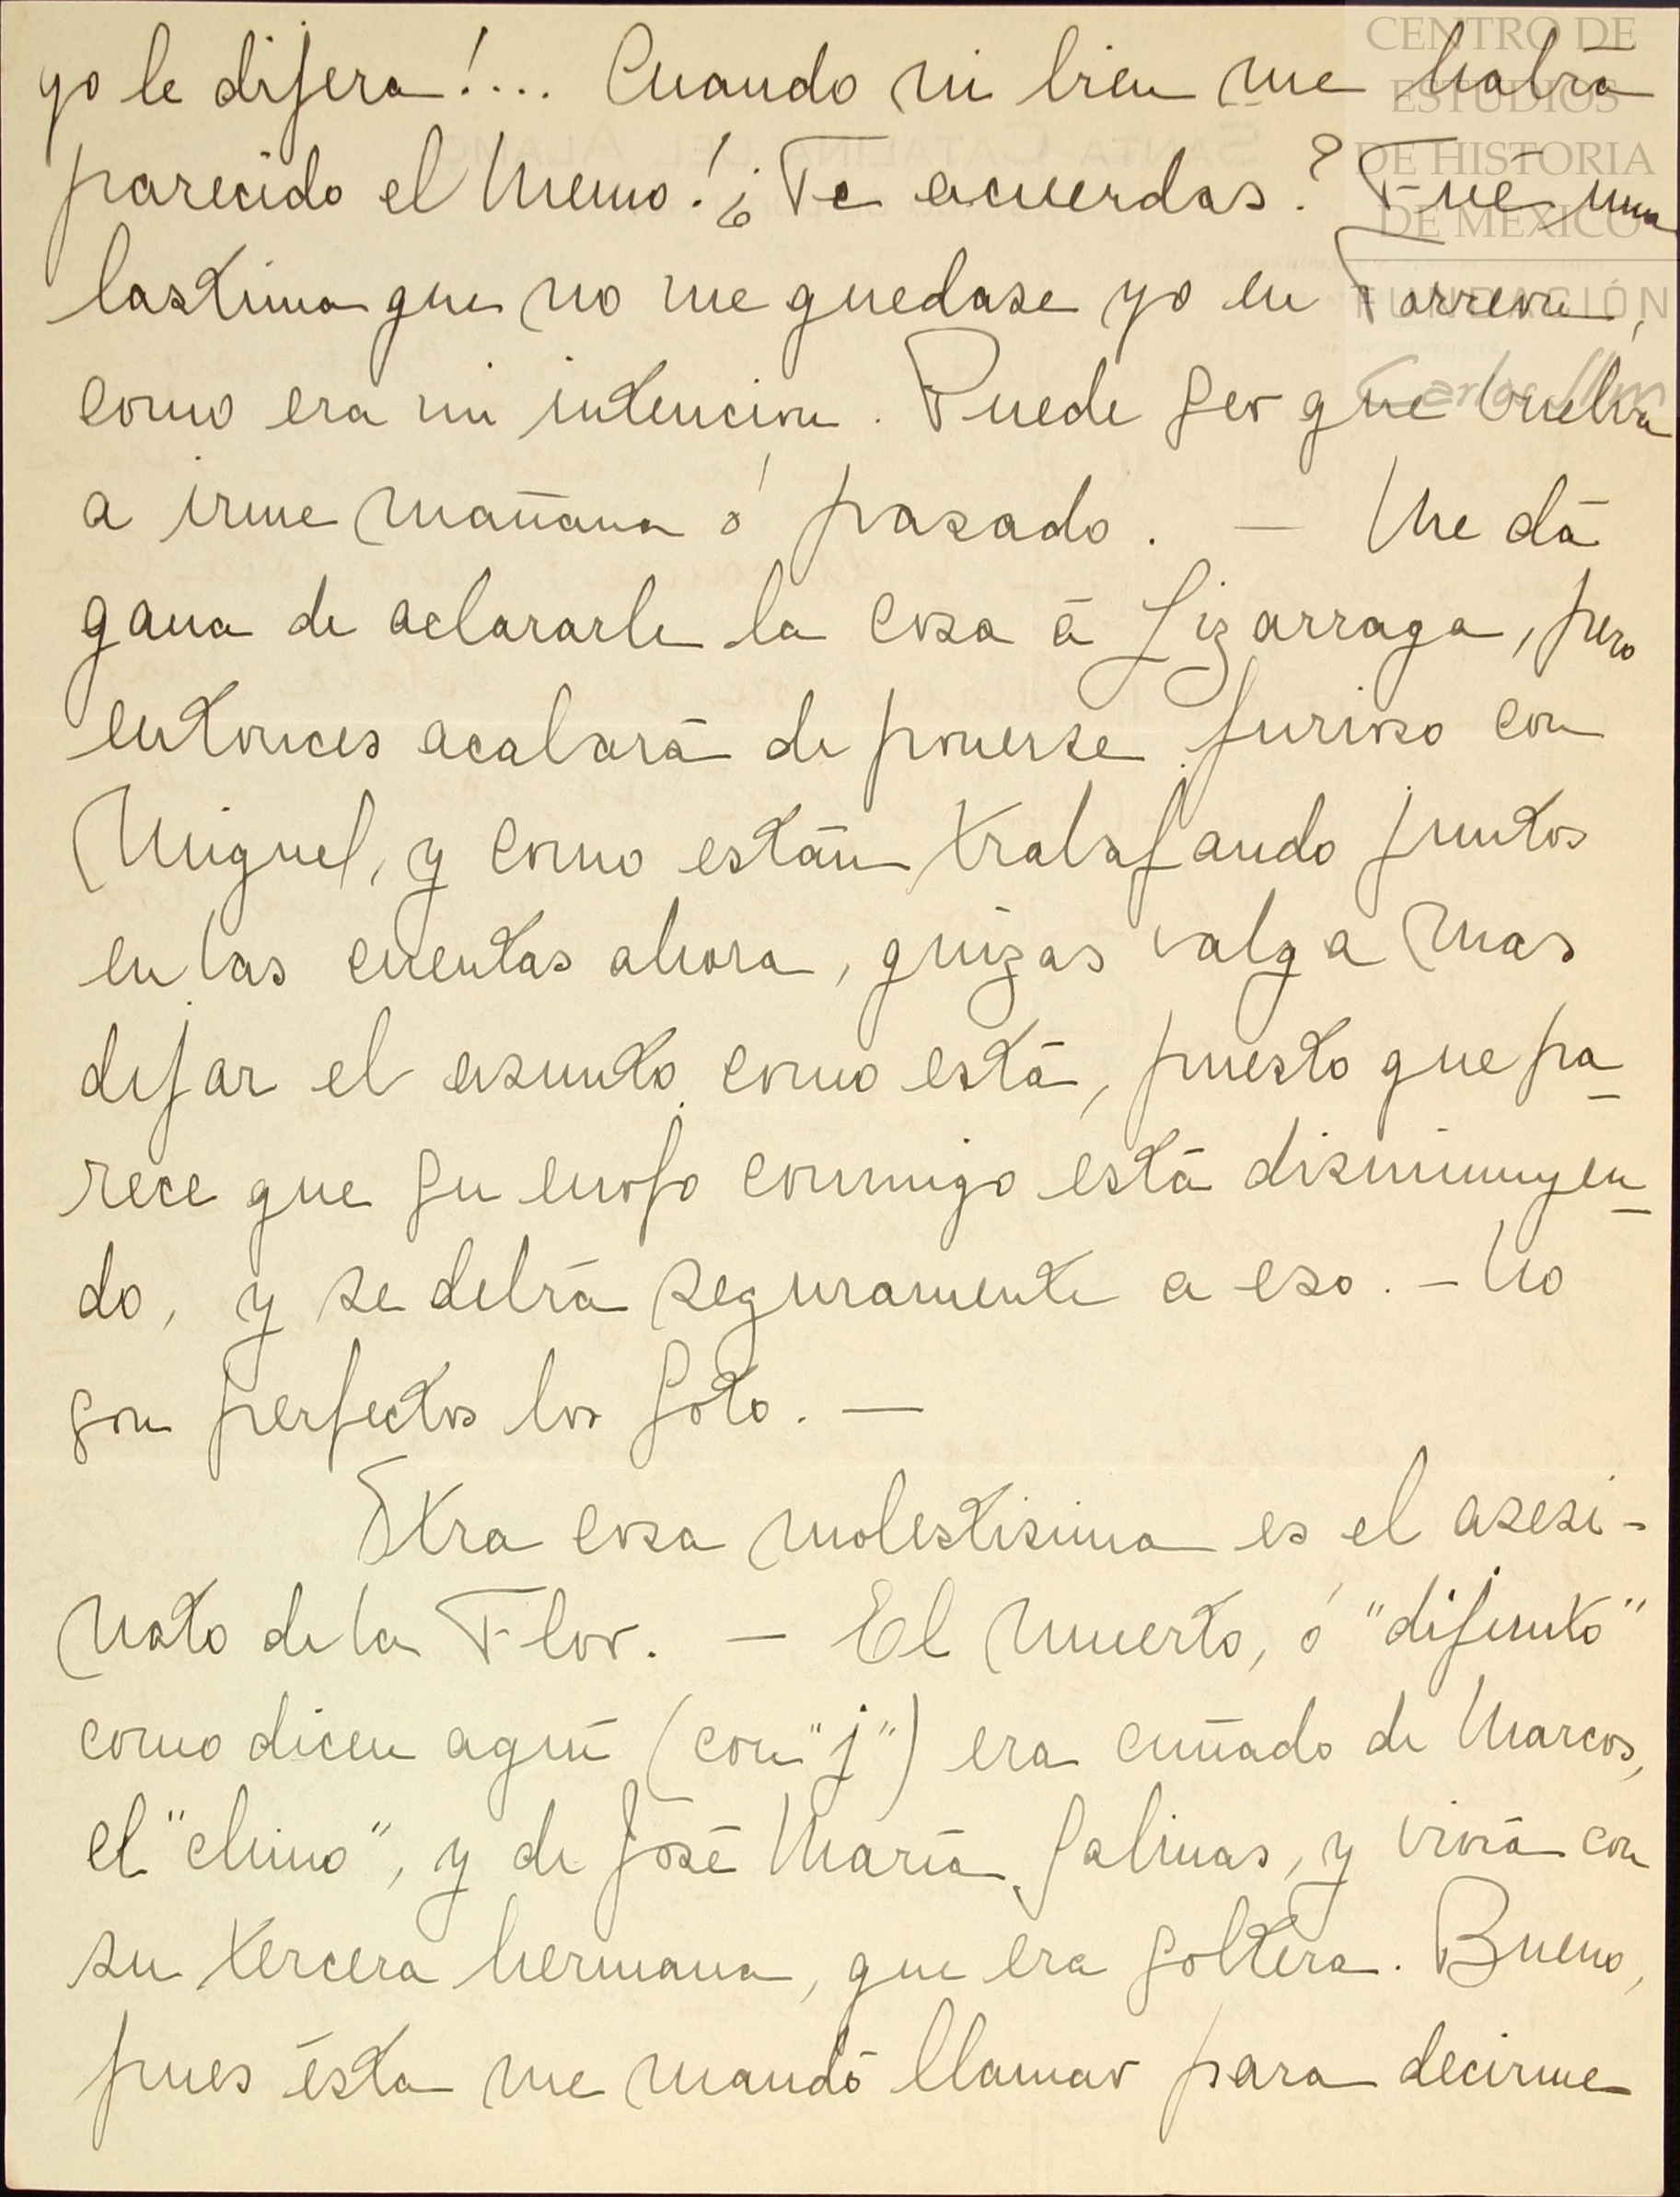 CENTRO DE
ESTUDIOS
DE HISTORIA
DE MÉXICO
FUNDACIÓN
Carlos Slim
yo le dijera!... Cuando ni bien me habrá
parecido el Memo! ¿Te acuerdas? Fué una
lastima que no me quedase yo en Torreon,
como era mi intencion. Puede ser que vuelva
a irme mañana ó pasado. — Me dá
gana de aclararle la cosa á Lizarraga, pero
entonces acabará de ponerse furioso con
Miguel, y como están trabajando juntos
en las cuentas ahora, quizas valga mas
dejar el asunto como está, puesto que pa-
rece que su enojo conmigo está disminuyen-
do, y se debrá seguramente a eso. — No
son perfectos los Soto. —
Otra cosa molestisima es el asesi-
nato de la Flor. — El muerto, ó "dijunto"
como dicen aquí (con "j") era cuñado de Marcos,
el "chino", y de José María Salinas, y vivía con
su tercera hermana, que era soltera. Bueno,
pues ésta me mandó llamar para decirme